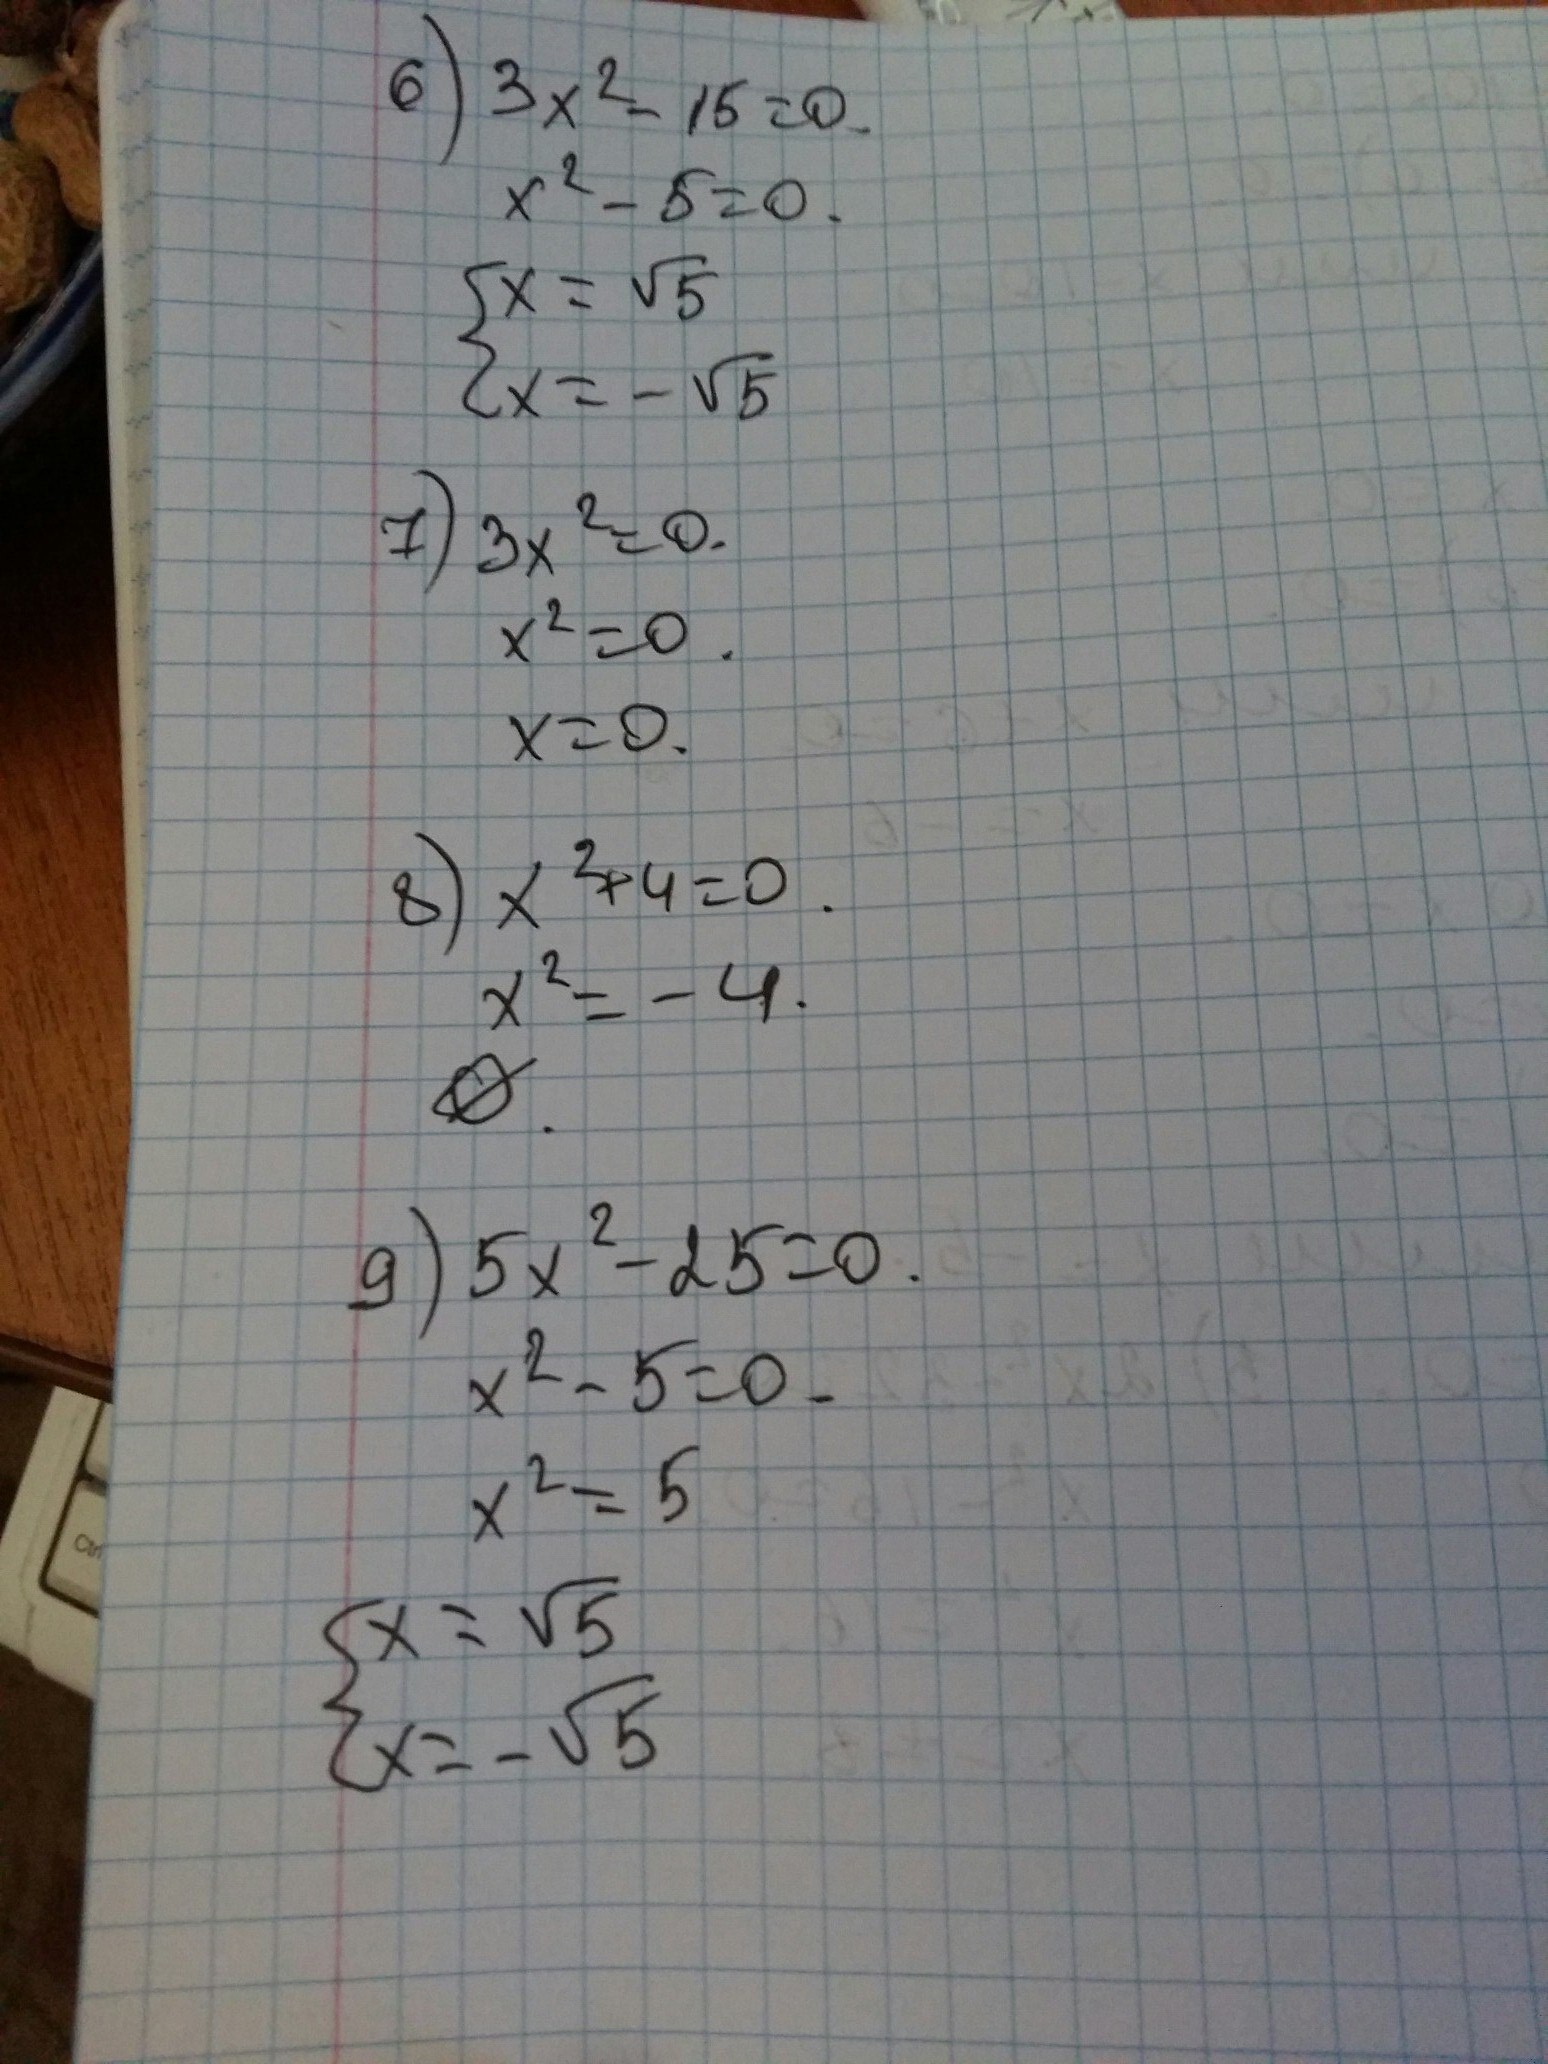 6) 3x² - 15 = 0.
x² - 5 = 0.
{x = √5
{x = - √5
7) 3x² = 0.
x² = 0.
x = 0.
8) x² + 4 = 0.
x² = - 4.
∅.
9) 5x² - 25 = 0.
x² - 5 = 0.
x² = 5
{x = √5
{x = - √5
Ctrl